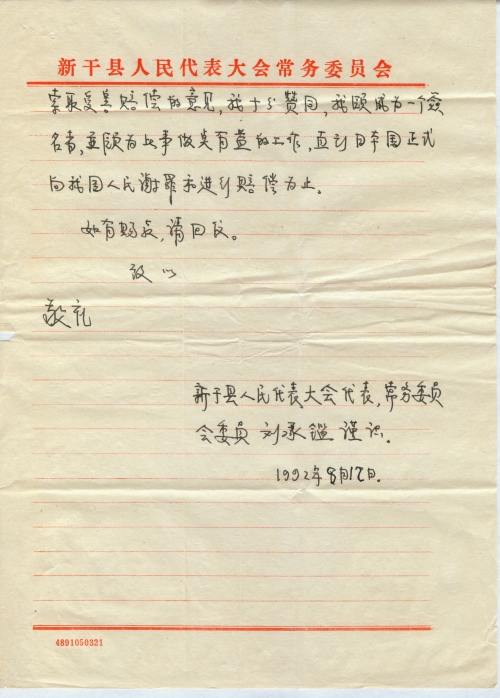 新干县人民代表大会常务委员会
索取受害赔偿的意见，我十分赞同，我愿成为一个签
名者，并愿为此事做某有益的工作，直到日本国正式
向我国人民谢罪和进行赔偿为止。
如有赐教，请回仪。
致以
敬礼
新干县人民代表大会代表，常务委员
会委员 刘承鑑 谨识。
1992年8月12日.
4891050321